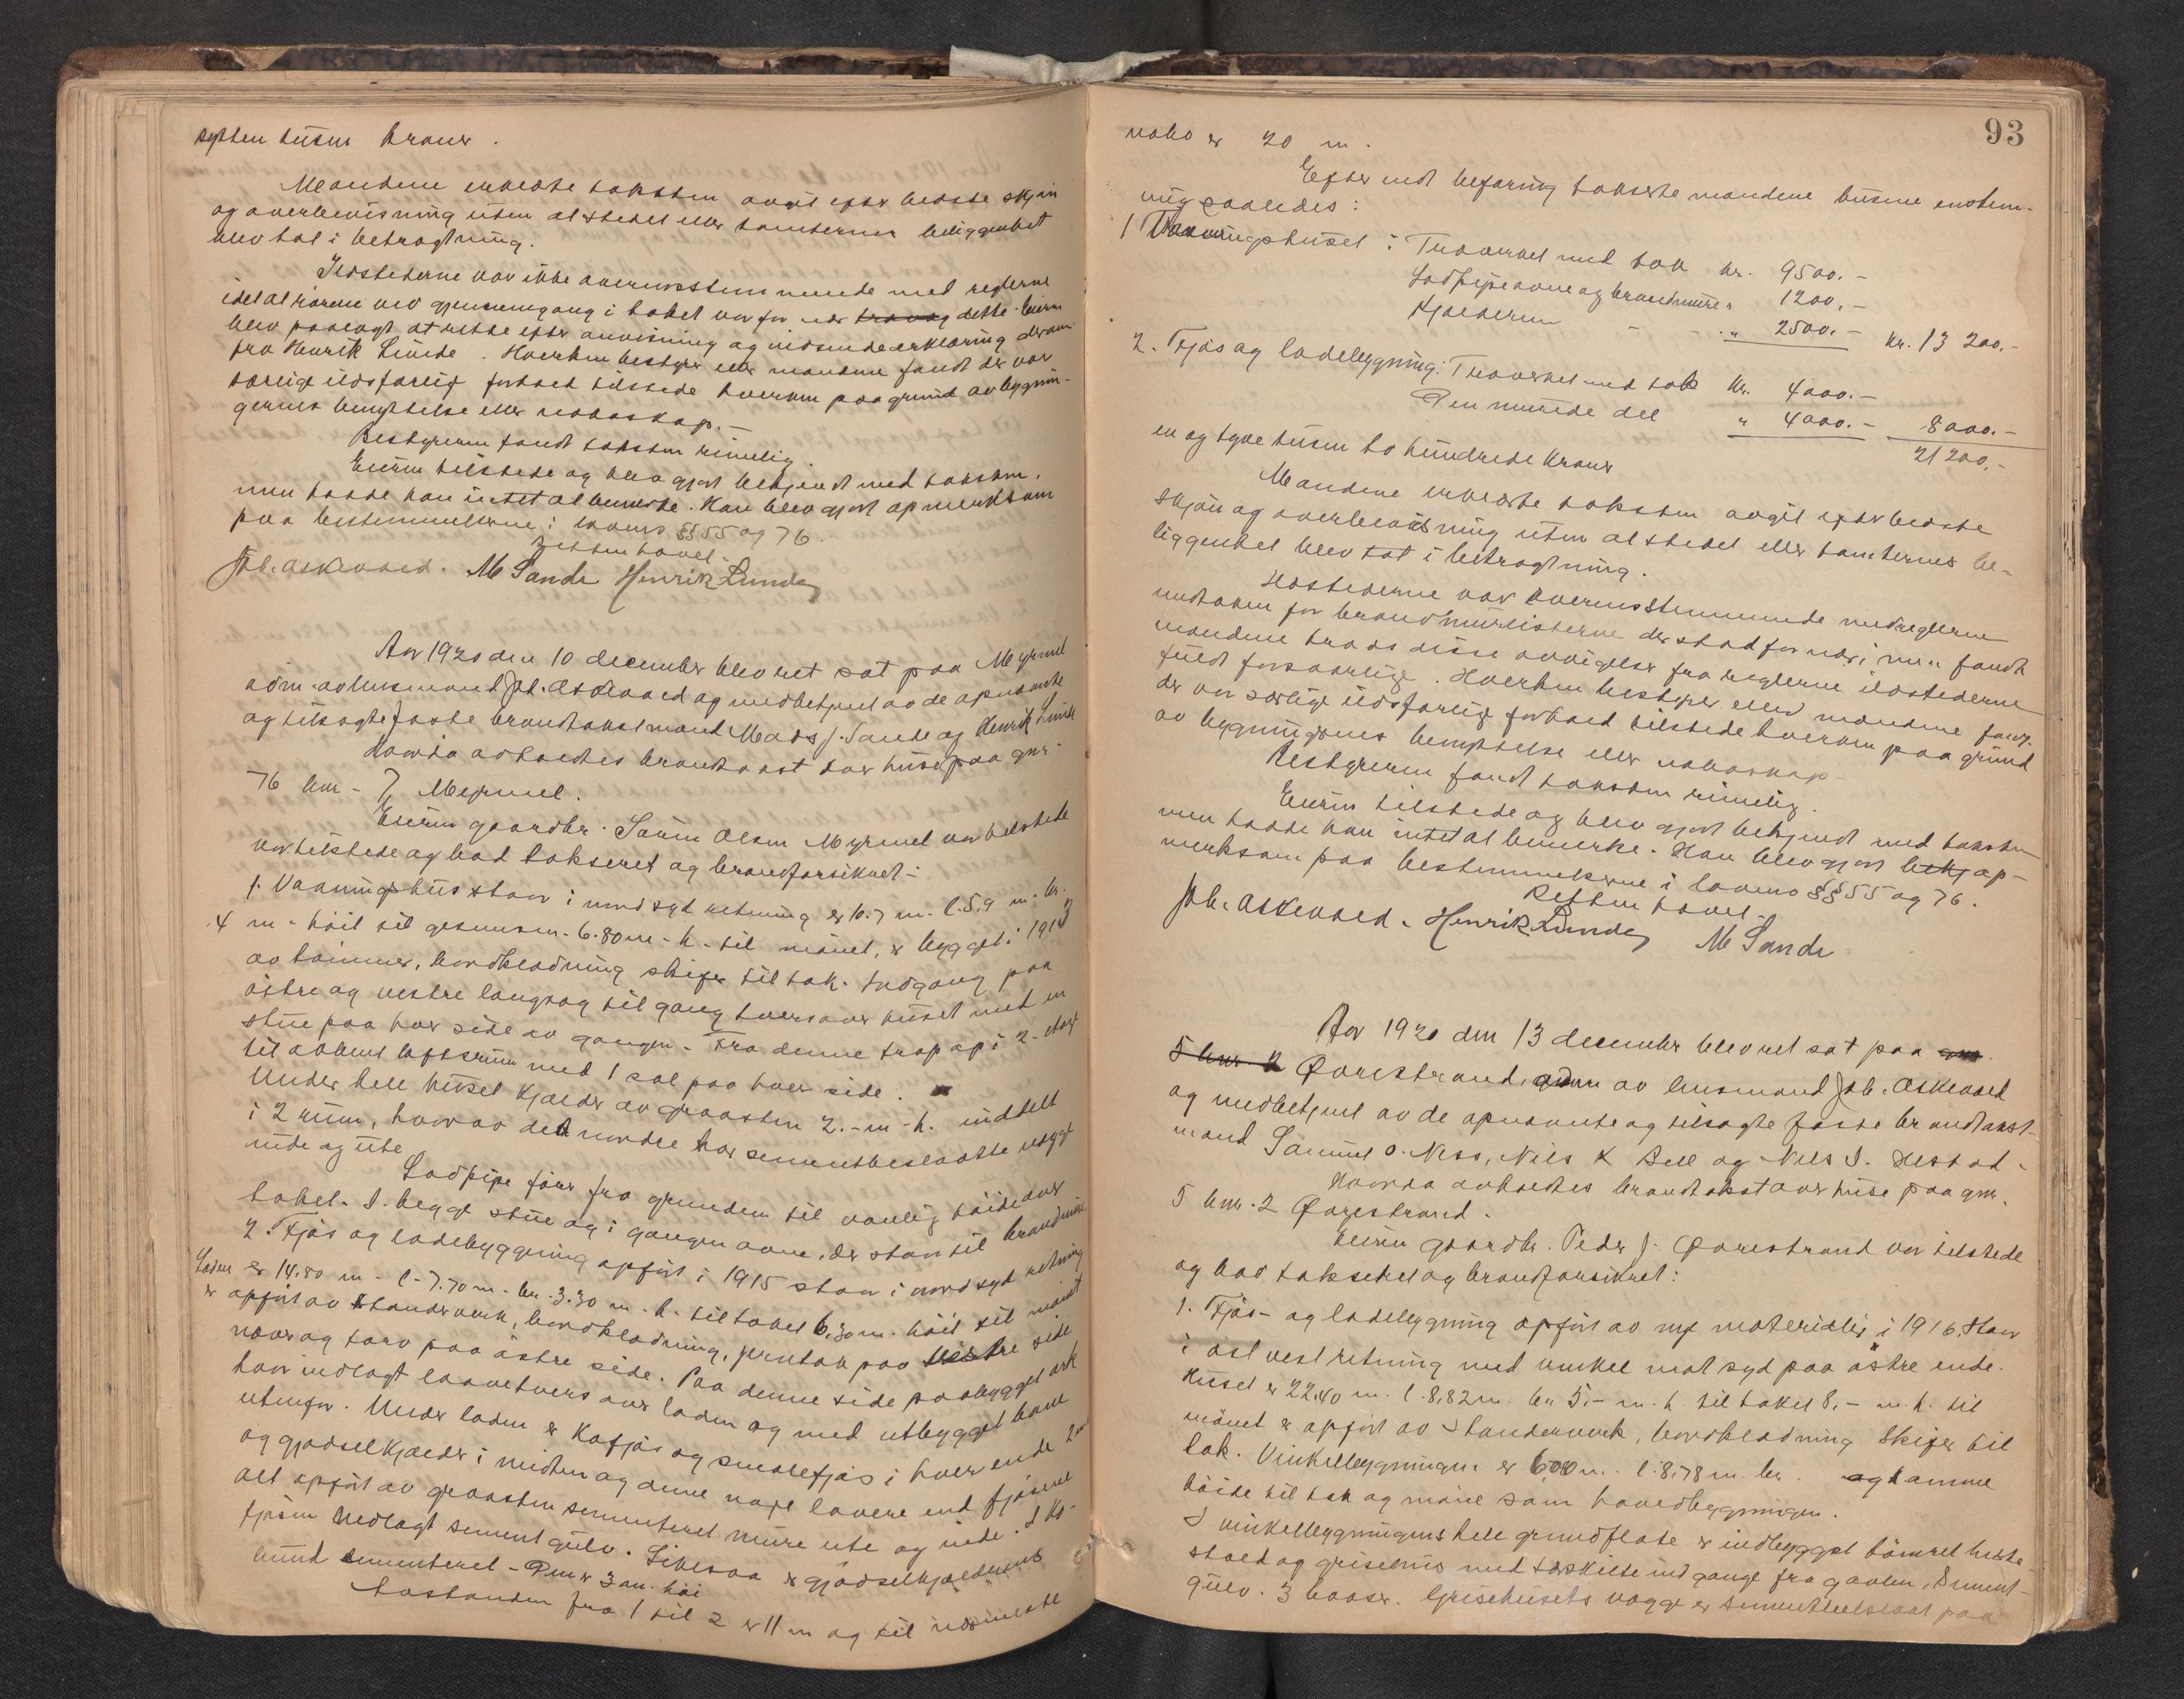 sytten tusen kroner.
Mændene erklærte taksten avgit efter bedste skjøn
og overbevisning uten at stedet eller tomternes beliggenhet
blev tat i betragtning.
Ildstederne var ikke overensstemmende med reglerne
idet at rørene ved gjennemgang i taket var for nær dette. Eieren
blev paalagt at rette efter anvisning og indsende erklæring derom
fra Henrik Lunde. Hverken bestyrer eller mændene fandt der var
særlige ildsfarlig forhold tilstede hverken paa grund av bygnin-
gernes benyttelse eller naboskap.-
Bestyreren fandt taksten rimelig.
Eieren tilstede og blev gjort bekjendt med taksten,
men hadde han intet at bemerke. Han blev gjort opmerksom
paa bestemmelserne i lovens §§ 55 og 76.
Retten hævet.
Joh. Askevold. M Sande Henrik Lunde
Aar 1920 den 10 december blev ret sat paa Myrmel
adm. av lensmand Joh. Askevold og medbetjent av de opnævnte
og tilsagte faste brandtakstmænd Mads J. Sande og Henrik Lunde
Hvorda avholdtes brandtakst over huse paa gnr.
76 bnr. 7 Myrmel.
Eieren gaardbr. Søren Olsen Myrmel var tilstede
var tilstede og bad takseret og brandforsikret-
1. Vaaningshus staar i nord syd retning er 10.7 m. l. 5,9 m. br.
4 m. høit til gesimsen. 6.80 m. h. til mønet, er bygget i 1913
av tømmer, bordklædning skifer til tak. Indgang paa
østre og vestre langvæg til gang tversover huset med en
stue paa hver side av gangen. Fra denne trap op i 2. etage
til aapent loftsrum med 1 sal paa hver side.
Under hele huset kjælder av graasten 2.- m. h. inddelt
i 2 rum, hvorav det nordre har sementbeslaatte vægge
inde og ute
Lodpipe fører fra grunden til vanlig høide over
taket. I begge stue og i gangen ovne, der staar til brandmure
2. Fjøs og ladebyggning opført i 1915 staar i nord syd retning
Laden er 14.80 m. l. 7.70 m. br. 3.30 m. h. til taket 6,30 m. høit til mønet
er opført av standerverk, bordklædning, jerntak paa vestre side
næver og torv paa østre side. Paa denne side paabygget ark
har indlagt laave tvers over laden og med utbygget bro
utenfor. Under laden er kofjøs og smalefjøs i hver ende
og gjødselkjælder i midten og denne noget lavere end fjøsene
alt opført av graasten sementeret mure ute og inde. I ko-
fjøsen nedlagt sementgulv. Likesaa er gjødselkjælderens
bund sementeret - Den er 3 m. høi
Avstanden fra 1 til 2 er 11 m og til nærmeste
93
nabo er 20 m.
Efter endt befaring takserte mændene husene enstem-
mig saaledes:
1 Vaaningshuset: Træverket med tak kr. 9500.-
Lodpipe ovne og brandmure " 1200.-
Kjælderen - - " 2500.- Kr. 13 200.-
2. Fjøs og ladebygning: Træverket med tak Kr. 4000.-
Den murede del " 4000.- 8000.-
21 200.-
en og tyve tusen to hundrede kroner
Mændene erklærte taksten avgit efter bedste
skjøn og overbevisning uten at stedet eller tomternes be-
liggenhet blev tat i betragtning.
Ildstederne var overensstemmende med reglerne
undtagen for brandmurlisterne der stod for nær, men fandt
mændene trods disse avvigelser fra reglerne ildstederne
fuldt forsvarlige. Hverken bestyrer eller mændene fandt
der var særlige ildsfarlig forhold tilstede hverken paa grund
av bygningernes benyttelse eller naboskap-
Bestyreren fandt taksten rimelig.
Eieren tilstede og blev gjort bekjendt med taksten
men hadde han intet at bemerke. Han blev gjort bekj op-
merksom paa bestemmelserne i lovens §§ 55 og 76.
Retten hævet.
Joh. Askevold. Henrik Lunde M Sande
Aar 1920 den 13 december blev ret sat paa gnr.
5 bnr 2 Øvrestrand, adm av lensmand Joh. Askevold
og medbetjent av de opnævnte og tilsagte faste brandtakst-
mænd Samuel O. Ness, Nils K Bell og Nils S. Hestad.
Hvorda avholdtes brandtakst over huse paa gnr.
5 bnr. 2 Øvrestrand.
Eieren gaardbr. Peder J. Øvrestrand var tilstede
og bad taksert og brandforsikret:
1. Fjøs- og ladebygning opført av nyt materialer i 1916. Staar
i øst vest retning med vinkel mot syd paa østre ende.
Huset er 22.40 m. l. 8,82 m. br. 5.- m. h. til taket 8.- m. h. til
mønet er opført av standerverk, bordklædning Skifer til
tak. Vinkelbygningen er 6,00 m. l. 8,78 m. br. og samme
høide til tak og møne som hovedbygningen.
I vinkelbygningens hele grundflate er indbygget tømret heste
stald og grisehus med særskilte indgange fra gavlen, sement-
gulv. 3 baaser. Grisehusets vægge er sementbeslaat paa